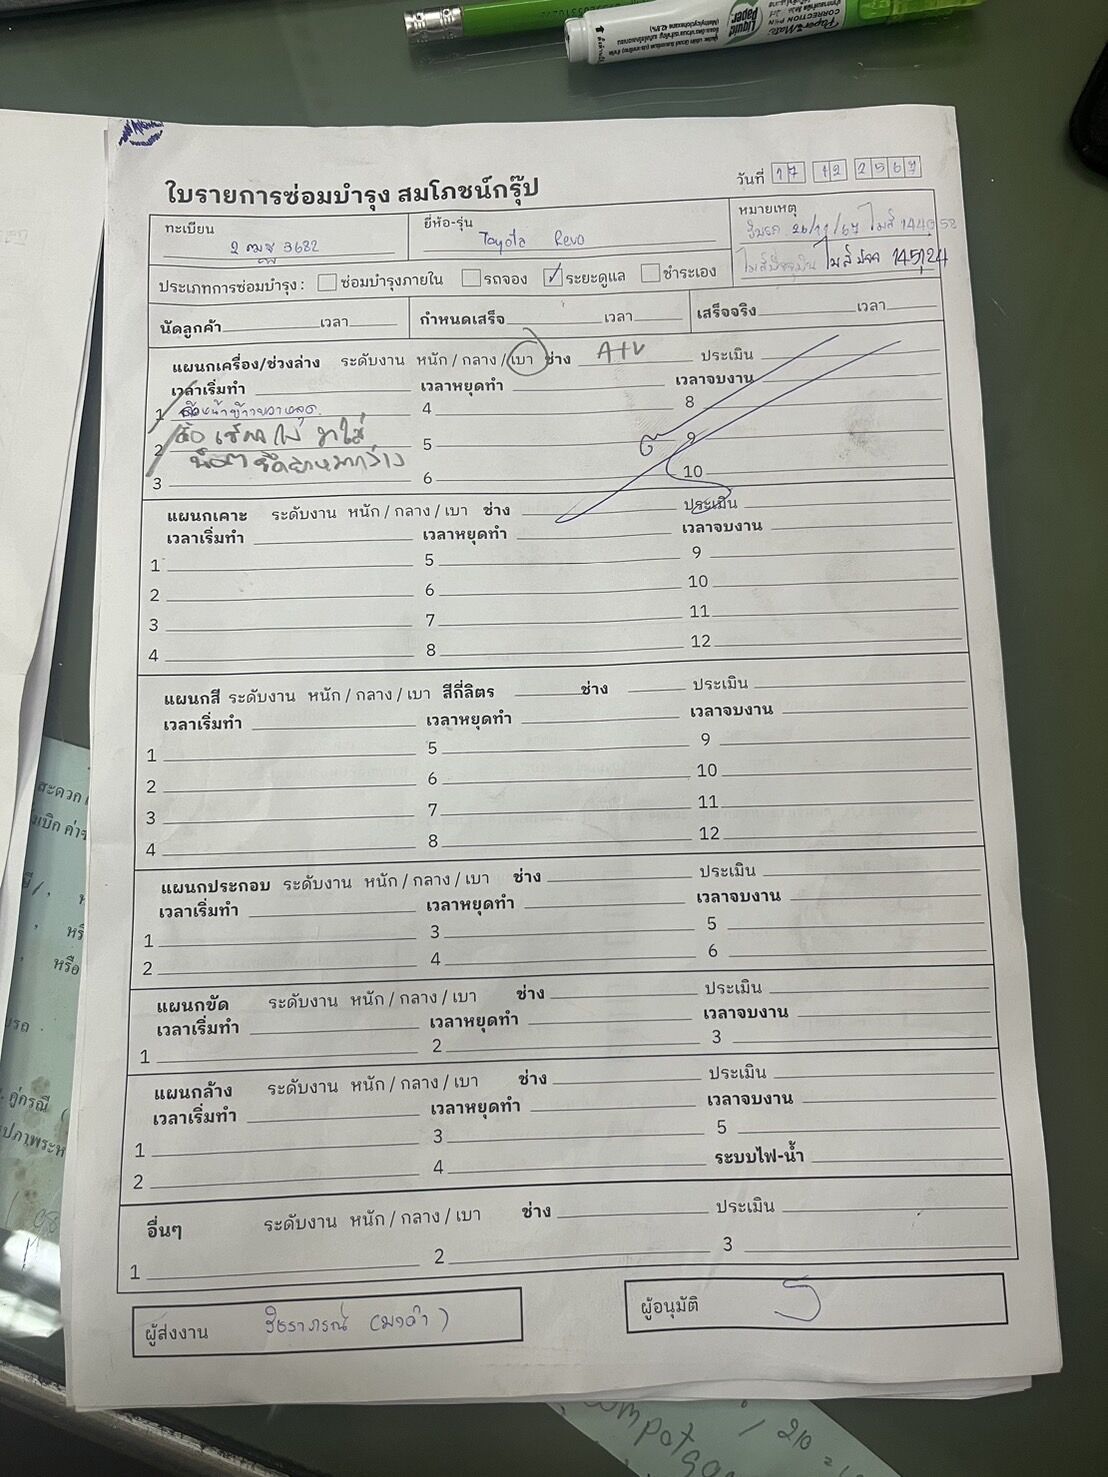 Paper Mate
CORRECTION PEN
Liquid Paper
(Methylcyclohexane 42.8%)
ใบรายการซ่อมบำรุง สมโภชน์กรุ๊ป
วันที่ 17 12 2567
ทะเบียน
2 ฒฐ 3682
ยี่ห้อ-รุ่น
Toyota Revo
หมายเหตุ
26/11/67 ไมล์ 144058
ไมล์ปัจจุบัน ไมล์ 145124
ประเภทการซ่อมบำรุง : ซ่อมบำรุงภายใน รถจอง ✓ ระยะดูแล ชำระเอง
นัดลูกค้า เวลา กำหนดเสร็จ เวลา เสร็จจริง เวลา
แผนกเครื่อง/ช่วงล่าง ระดับงาน หนัก / กลาง / เบา ช่าง ประเมิน
เวลาเริ่มทำ เวลาหยุดทำ เวลาจบงาน
1 4 8
2 5 9
3 6 10
แผนกเคาะ ระดับงาน หนัก / กลาง / เบา ช่าง ประเมิน
เวลาเริ่มทำ เวลาหยุดทำ เวลาจบงาน
1 5 9
2 6 10
3 7 11
4 8 12
แผนกสี ระดับงาน หนัก / กลาง / เบา สีกี่ลิตร ช่าง ประเมิน
เวลาเริ่มทำ เวลาหยุดทำ เวลาจบงาน
1 5 9
2 6 10
3 7 11
4 8 12
แผนกประกอบ ระดับงาน หนัก / กลาง / เบา ช่าง ประเมิน
เวลาเริ่มทำ เวลาหยุดทำ เวลาจบงาน
1 3 5
2 4 6
แผนกขัด ระดับงาน หนัก / กลาง / เบา ช่าง ประเมิน
เวลาเริ่มทำ เวลาหยุดทำ เวลาจบงาน
1 2 3
แผนกล้าง ระดับงาน หนัก / กลาง / เบา ช่าง ประเมิน
เวลาเริ่มทำ เวลาหยุดทำ เวลาจบงาน
1 3 5
2 4 ระบบไฟ-น้ำ
อื่นๆ ระดับงาน หนัก / กลาง / เบา ช่าง ประเมิน
1 2 3
ผู้ส่งงาน
ผู้อนุมัติ
สะดวก
เบิก ค่า
หรือ
คู่กรณี